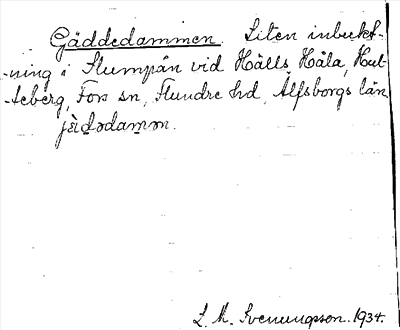 Gäddedammen. Liten inbukt-
-ning i Slumpån vid Hålls Håla, Hul-
-teberg, Fors sn, Flundre hd, Älfsborgs län
jèd̲əd̲am̲ən.
L. M. Svenungsson. 1934.